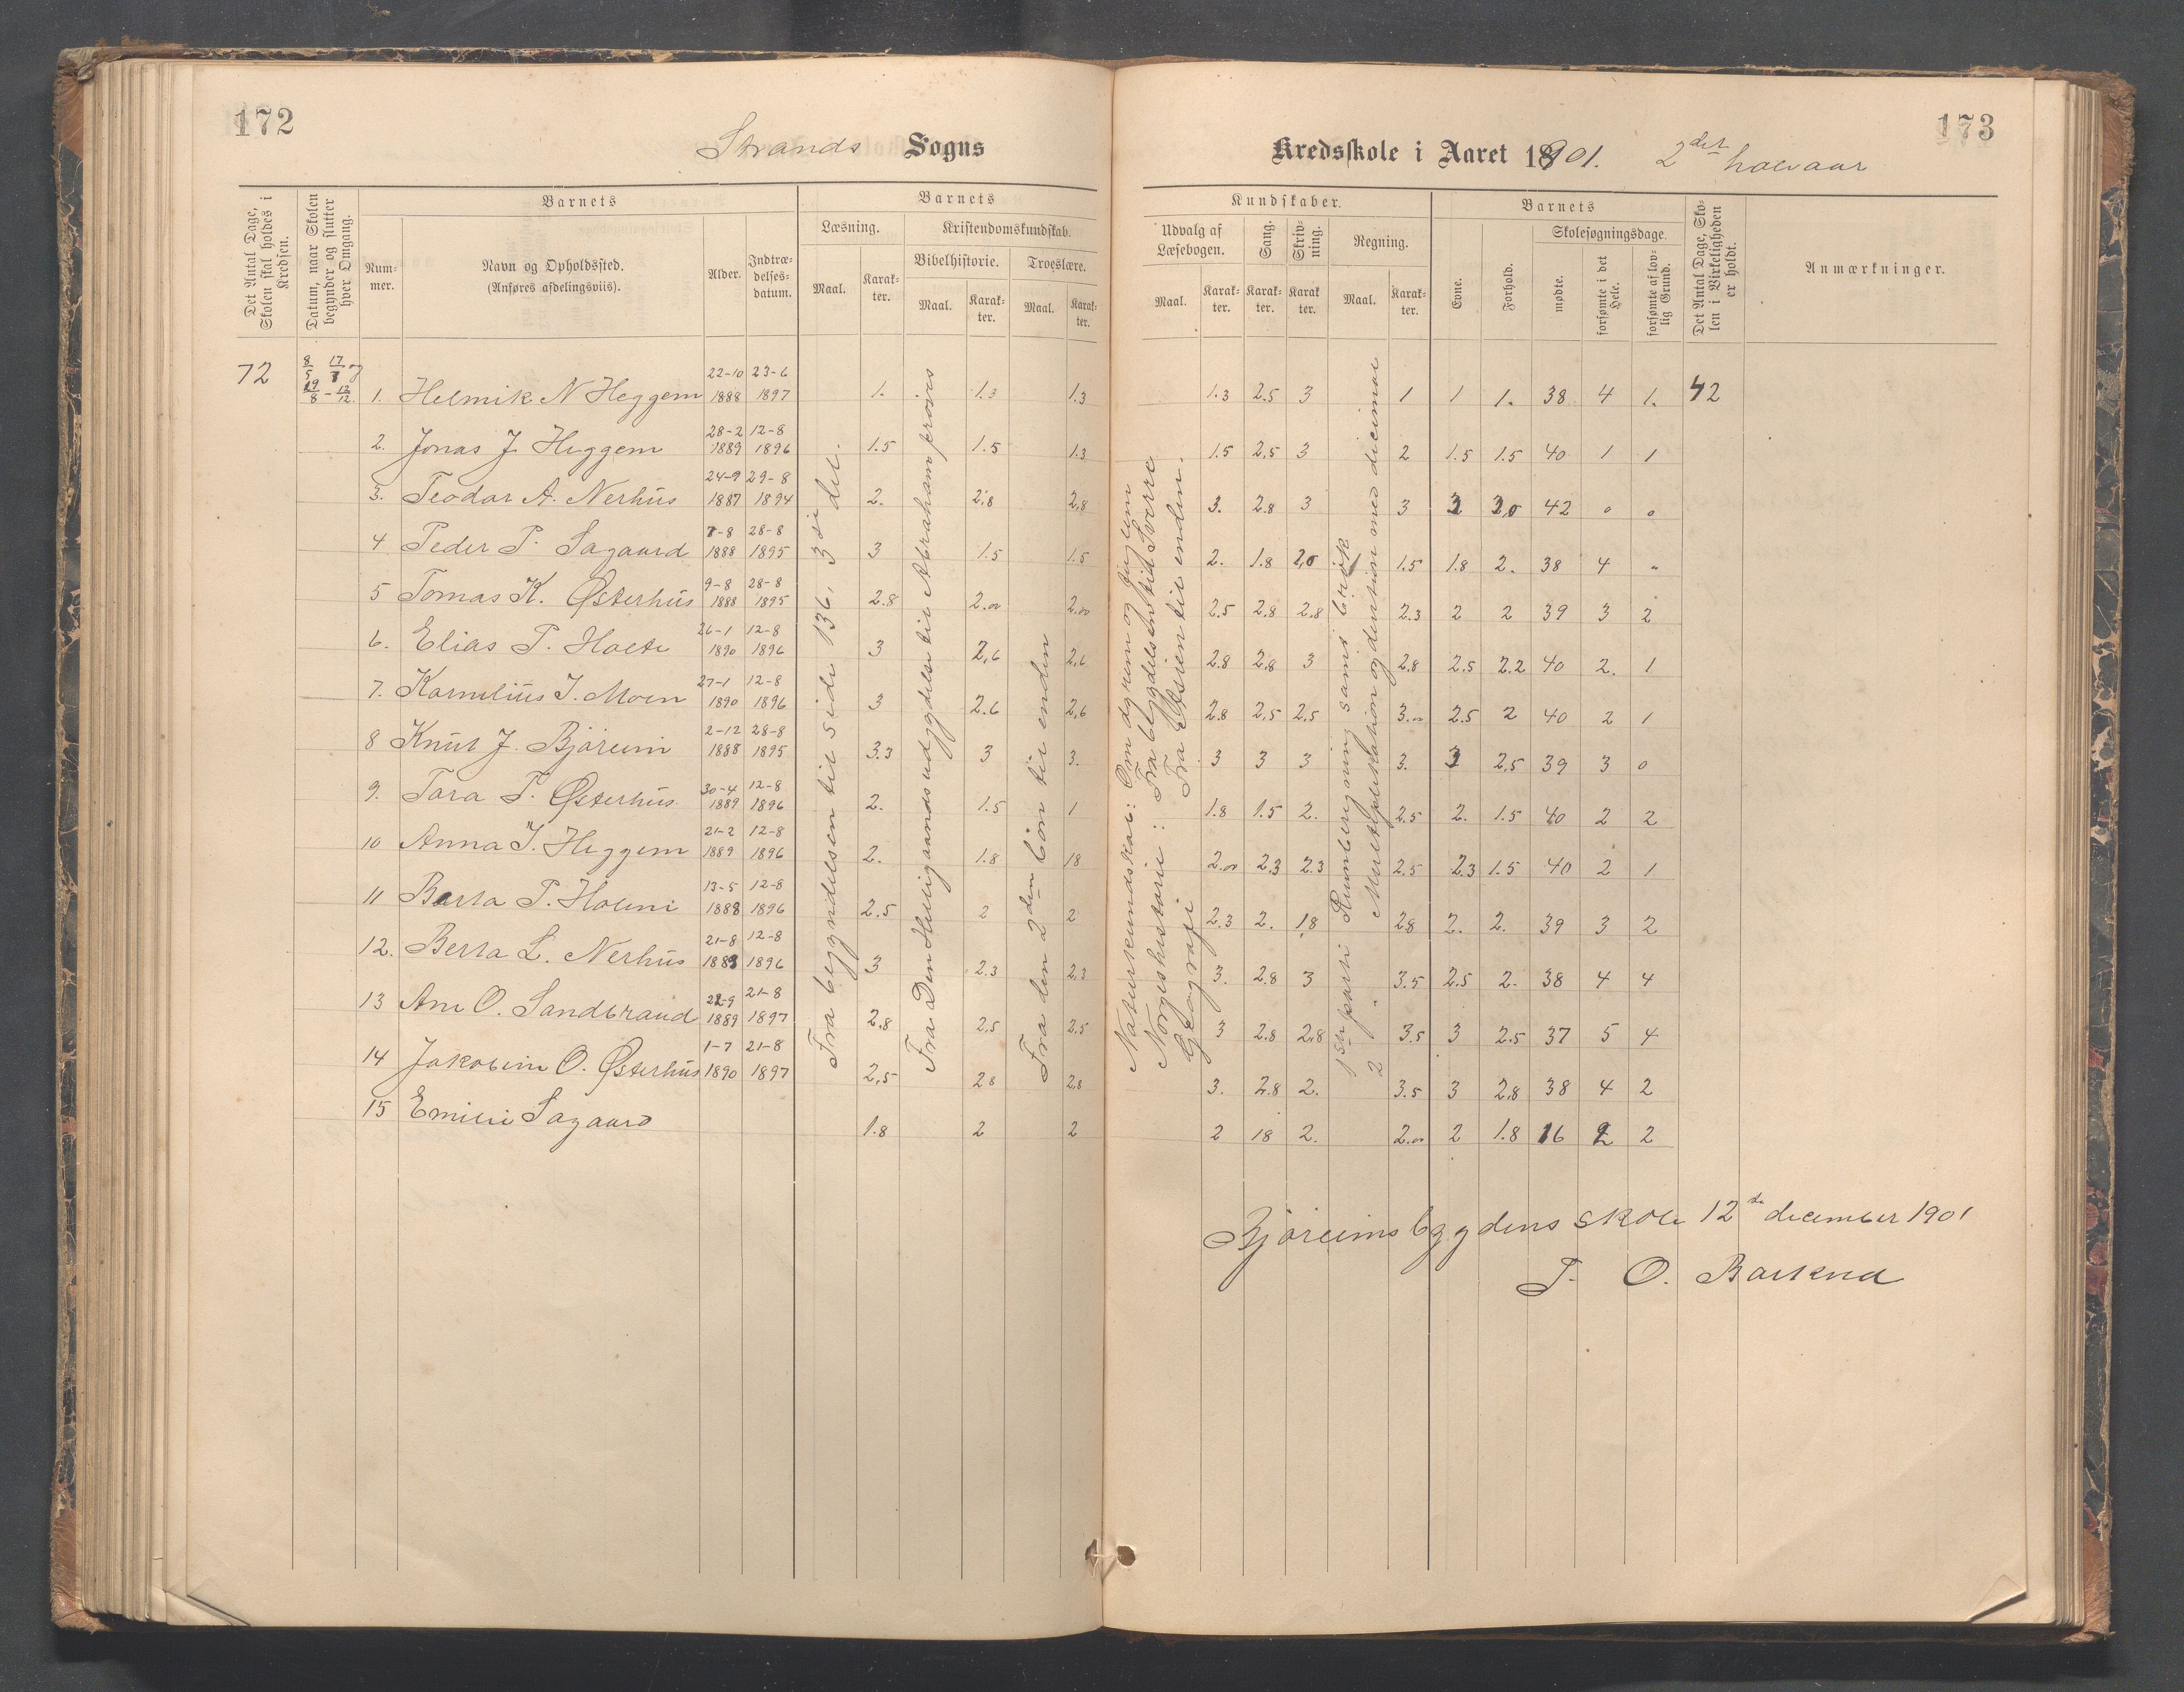 172
Strands Sogns
Det Antal Dage, Skolen skal holdes i Kredsen.
Datum, naar Skolen begynder og slutter hver Omgang.
Barnets
Num-mer.
Navn og Opholdssted.
(Anføres afdelingsviis).
Alder.
Indtræ-delses-datum.
Barnets
Læsning.
Kristendomskundskab.
Bibelhistorie.
Troeslære.
Maal.
Karak-ter.
Maal.
Karak-ter.
Maal.
Karak-ter.
72 8/5 17/7 og 19/8 - 12/12.
1. Helmik N Heggem 22-10 1888 23-6 1897 1. 1.3 1.3
2. Jonas J Heggem 28-2 1889 12-8 1896 1.5 1.5 1.3
3. Teodor A. Nerhus 24-9 1887 29-8 1894 2. 2,8 2,8
4 Peder P. Sagaard 7-8 1888 28-8 1895 3 1.5 1.5
5 Tomas K. Østerhus 9-8 1888 28-8 1895 2.8 2.00 2.00
6. Elias P. Holte 26-1 1890 12-8 1896 3 2,6 2,6
7. Kornelius J. Moen 27-1 1890 12-8 1896 3 2.6 2,6
8 Knut J. Björeim 2-12 1888 28-8 1895 3.3 3 3.
9. Tora T. Østerhus 30-4 1889 12-8 1896 2. 1.5 1
10 Anna J. Heggem 21-2 1889 12-8 1896 2. 1.8 18
11 Berta P. Holmi 13-5 1888 12-8 1896 2.5 2 2
12. Berta L. Nerhus 21-8 1889 12-8 1896 3 2.3 2,3
13 Ane O. Sandbraud 22-9 1889 21-8 1897 2.8 2,5 2,5
14 Jakobine O. Østerhus 1-7 1890 21-8 1897 2,5 28 2,8
15 Emilie Sagaard 1.8 2 2
Fra begyndelsen til side 136, 3die del.
Fra Den Helligaands udgydelse til Abraham prøves
Fra den 2den bön til enden
173
Kredsskole i Aaret 1901. 2det halvaar
Kundskaber.
Udvalg af Læsebogen.
Sang.
Skriv-ning.
Regning.
Maal.
Karak-ter.
Karak-ter.
Karak-ter.
Maal.
Karak-ter.
Barnets
Evne.
Forhold.
Skolesøgningsdage.
mødte.
forsømte i det Hele.
forsømte af lov-lig Grund.
Det Antal Dage, Sko-len i Virkeligheden er holdt.
Anmærkninger.
1.3 2.5 3 1 1 1. 38 4 1. 42
1.5 2,5 3 2 1.5 1.5 40 1 1
3. 2.8 3 3 3 3,0 42 0 0
2. 1.8 2,0 1.5 1.8 2. 38 4 "
2.5 2,8 2.8 2.3 2 2 39 3 2
2.8 2,8 3 2.8 2.5 2.2 40 2. 1
2.8 2,5 2,5 3.00 2.5 2 40 2 1
3 3 3 3. 3 2,5 39 3 0
1.8 1.5 2. 2.5 2. 1.5 40 2 2
2.00 2.3 2.3 2.5 2.3 1.5 40 2 1
2.3 2. 1,8 28 2. 2. 39 3 2
3. 2.8 3 3.5 2,5 2. 38 4 4
3 2.8 2,8 3.5 3 2.5 37 5 4
3. 2.8 2. 3.5 3 2,8 38 4 2
2 18 2. 2.00 2 1.8 16 2 2
Naturkundskab: Om dyrene og fuglene
Norgeshistorie: Fra begyndelsen til Sverre
Geografi Fra Asien til enden.
1ste parti Rumberegning samt brök
2 " Multiplikation og division med decimal
Björeimsbygdens skole 12te december 1901
T. O. Barkved